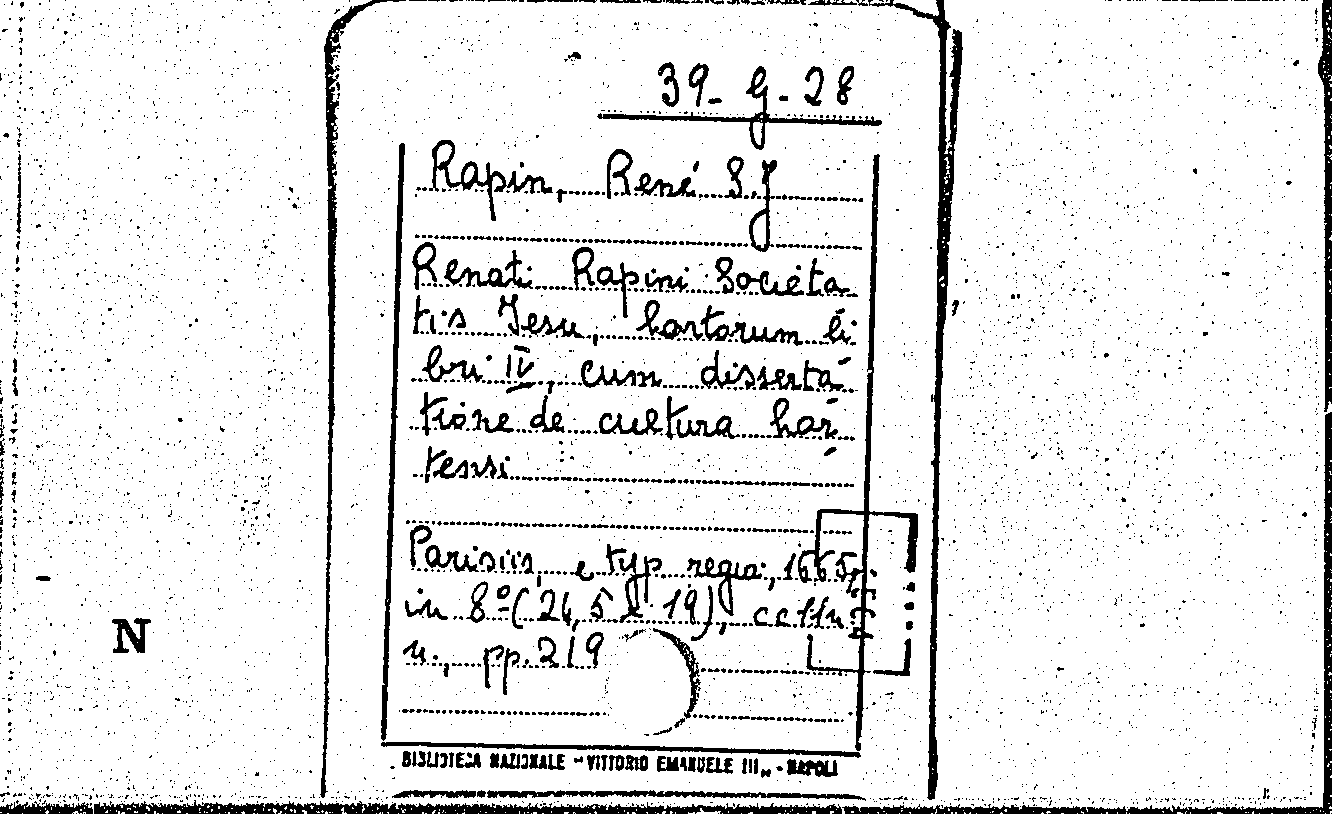 39- G - 28
Rapin, René S.J
Renati Rapini Societa-
tis Jesu, hortorum li-
bri IV, cum disserta-
tione de cultura hor-
tensi
Parisiis, e typ regia, 1665,
in 8º (24,5 x 19), cc
n., pp. 219
N
BIBLIOTECA NAZIONALE "VITTORIO EMANUELE III„ - NAPOLI